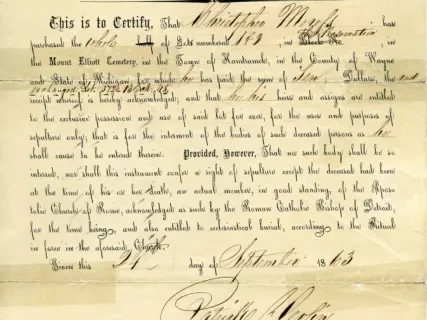 This is to Certify, That Christopher has
purchased the whole half of Lot numbered in Block No. , in
the Mount Elliott Cemetery, in the Town of Hamtramck, in the County of Wayne
and State of Michigan, for which he has paid the sum of Ten Dollars, the
receipt whereof is hereby acknowledged; and that he his heirs and assigns are entitled
to the exclusive possession and use of said lot for ever, for the uses and purposes of
sepulture only; that is for the interment of the bodies of such deceased persons as he
shall cause to be entered therein. Provided, However, That no such body shall be so
interred, nor shall this instrument confer a right of sepulture except the deceased had been
at the time of his or her death, an actual member, in good standing, of the Apos-
tolic Church of Rome, acknowledged as such by the Roman Catholic Bishop of Detroit,
for the time being, and also entitled to ecclesiastical burial, according to the Ritual
in force in the aforesaid, Church.
Given this 24 day of September 1863